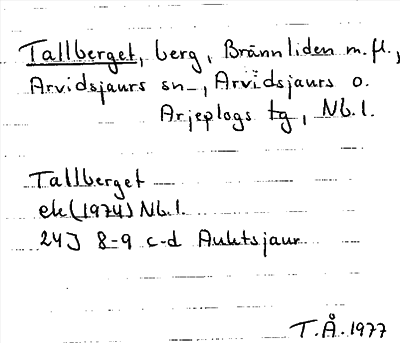 Tallberget, berg, Brännliden m.fl.,
Arvidsjaurs sn, Arvidsjaurs o.
Arjeplogs tg, Nb.l.
Tallberget
ek (1974) Nb.l.
24J 8-9 c-d Auktsjaur
T.Å. 1977